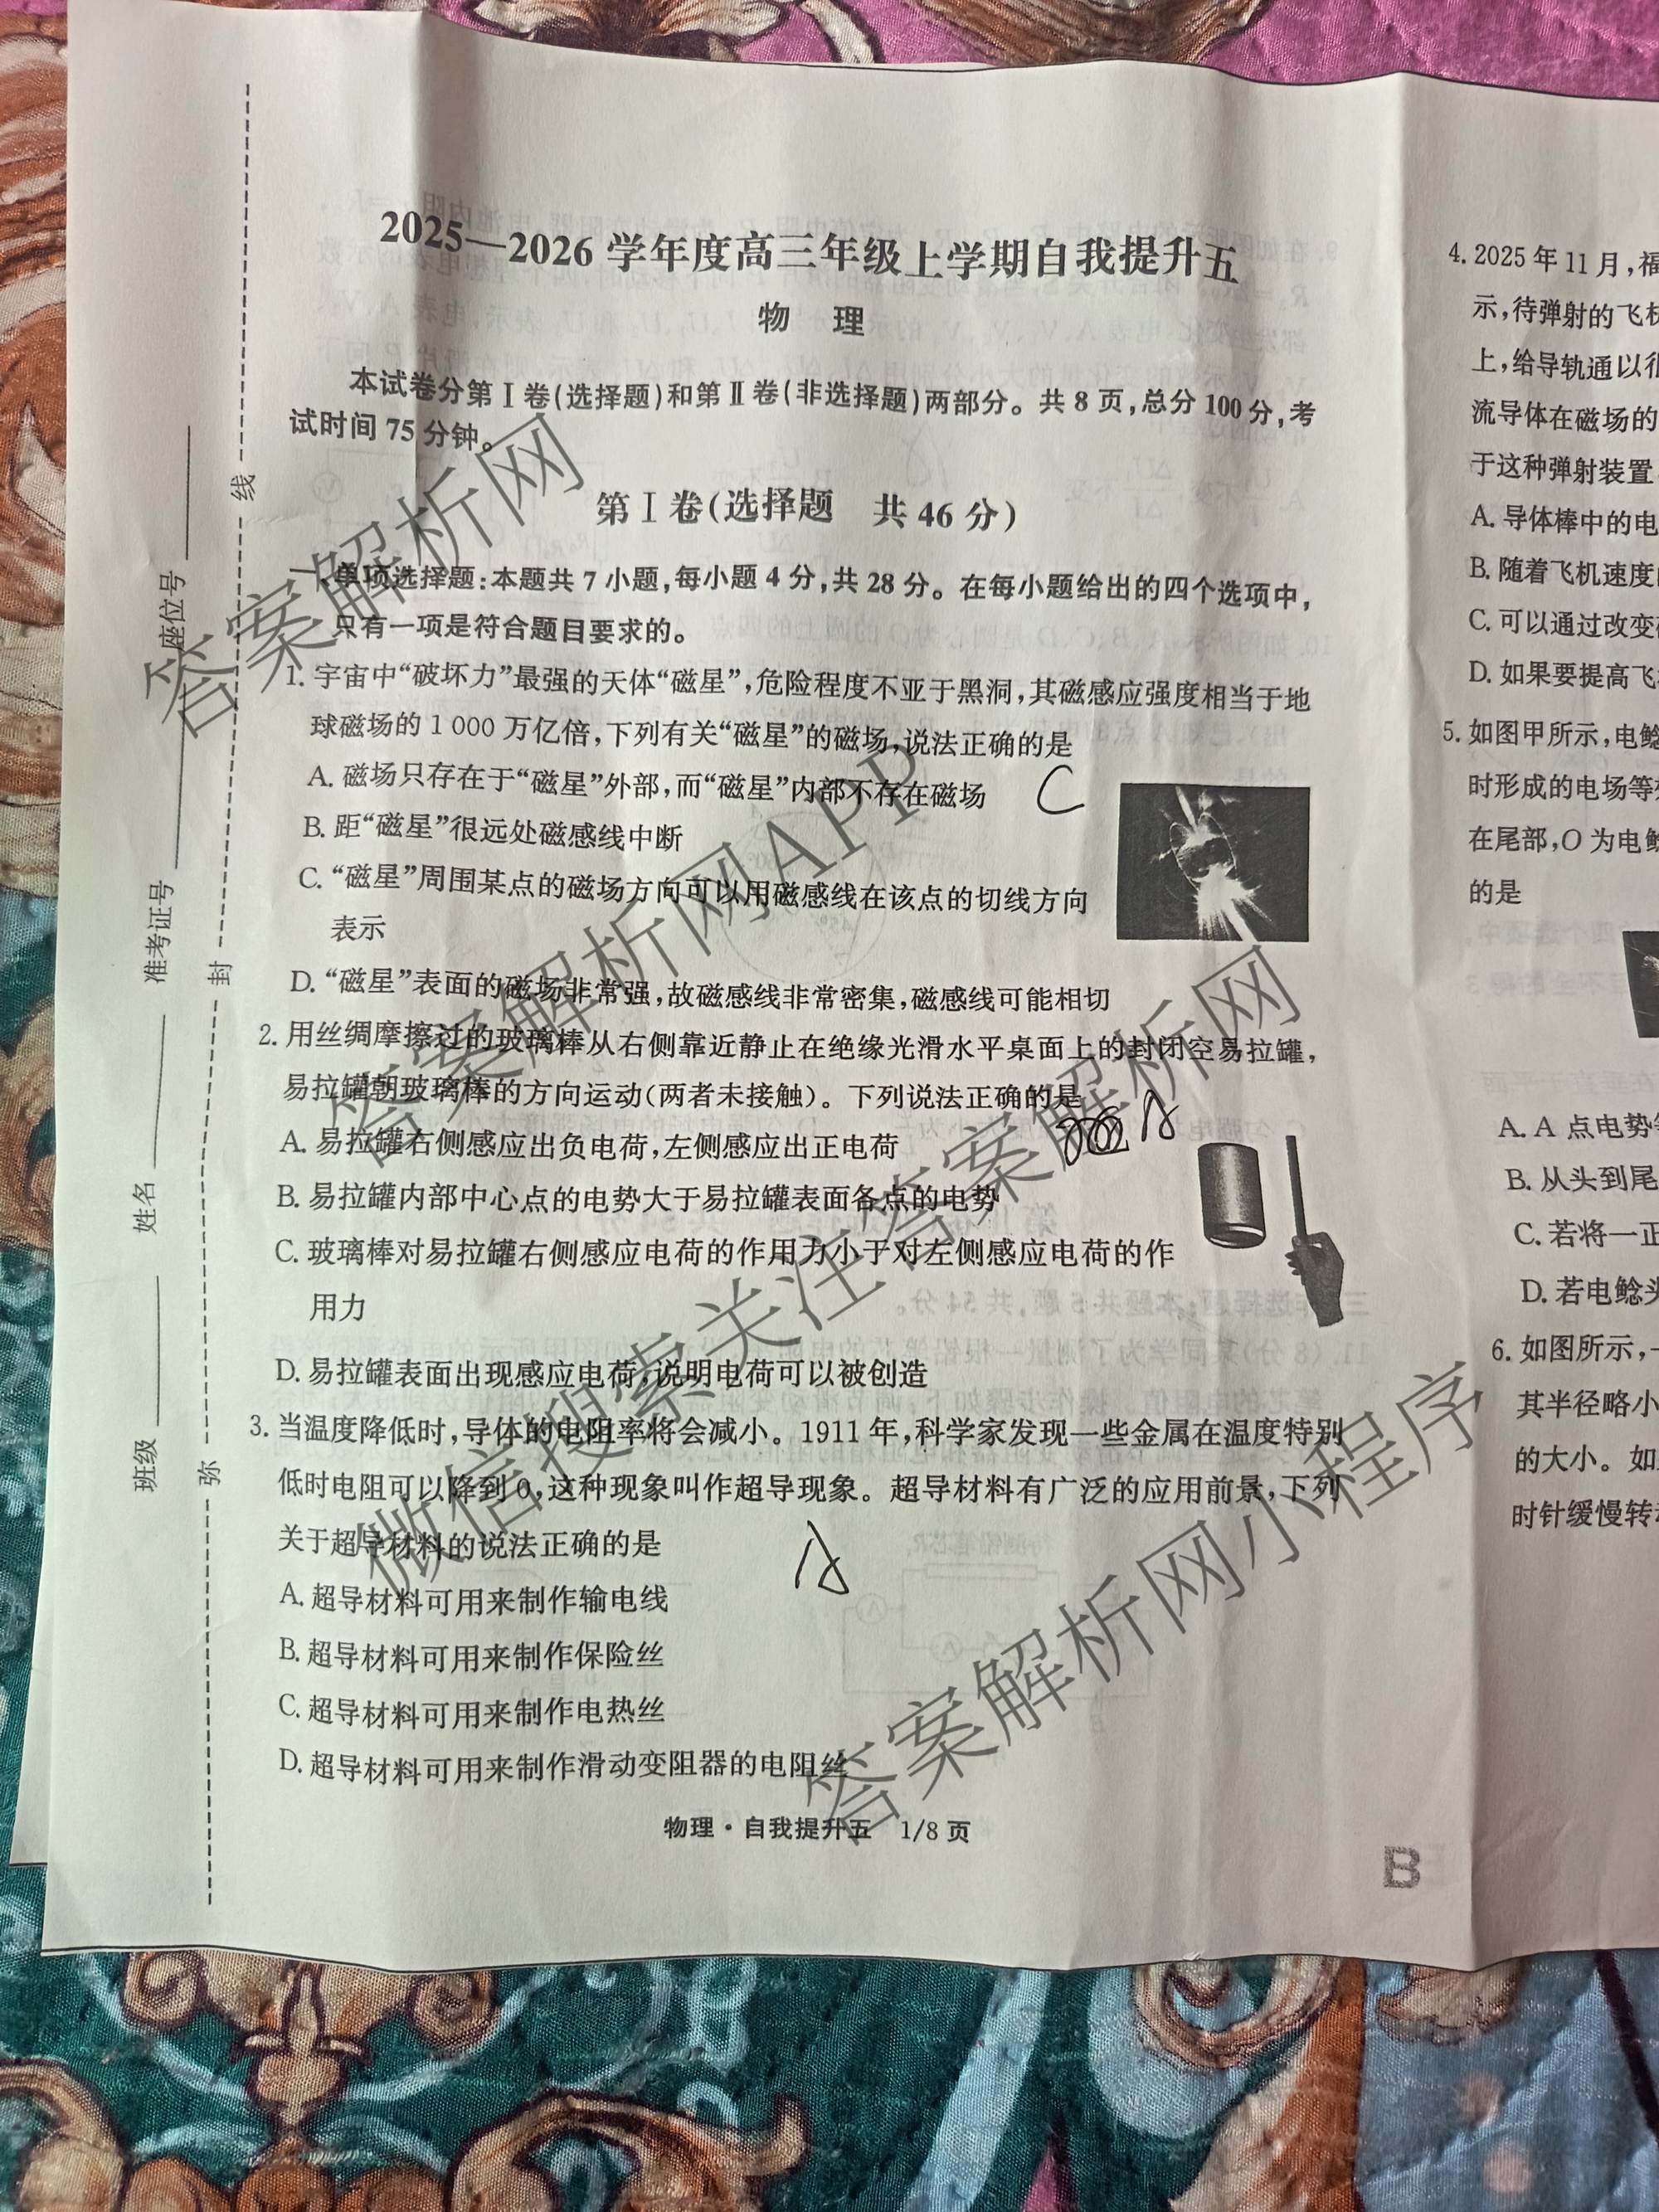 2025—2026学年度高三年级上学期自我提升五
物 理
本试卷分第Ⅰ卷(选择题)和第Ⅱ卷(非选择题)两部分。共8页,总分100分,考
试时间75分钟。
第Ⅰ卷(选择题 共46分)
一、单项选择题:本题共7小题,每小题4分,共28分。在每小题给出的四个选项中,
只有一项是符合题目要求的。
1. 宇宙中“破坏力”最强的天体“磁星”,危险程度不亚于黑洞,其磁感应强度相当于地
球磁场的1 000万亿倍,下列有关“磁星”的磁场,说法正确的是
A. 磁场只存在于“磁星”外部,而“磁星”内部不存在磁场
C
B. 距“磁星”很远处磁感线中断
C. “磁星”周围某点的磁场方向可以用磁感线在该点的切线方向
表示
D. “磁星”表面的磁场非常强,故磁感线非常密集,磁感线可能相切
2. 用丝绸摩擦过的玻璃棒从右侧靠近静止在绝缘光滑水平桌面上的封闭空易拉罐,
易拉罐朝玻璃棒的方向运动(两者未接触)。下列说法正确的是
A
A. 易拉罐右侧感应出负电荷,左侧感应出正电荷
B. 易拉罐内部中心点的电势大于易拉罐表面各点的电势
C. 玻璃棒对易拉罐右侧感应电荷的作用力小于对左侧感应电荷的作
用力
D. 易拉罐表面出现感应电荷,说明电荷可以被创造
3. 当温度降低时,导体的电阻率将会减小。1911年,科学家发现一些金属在温度特别
低时电阻可以降到0,这种现象叫作超导现象。超导材料有广泛的应用前景,下列
关于超导材料的说法正确的是
A
A. 超导材料可用来制作输电线
B. 超导材料可用来制作保险丝
C. 超导材料可用来制作电热丝
D. 超导材料可用来制作滑动变阻器的电阻丝
物理·自我提升五 1/8页
B
4. 2025年11月,福
示,待弹射的飞机
上,给导轨通以很
流导体在磁场的
于这种弹射装置
A. 导体棒中的电
B. 随着飞机速度
C. 可以通过改变
D. 如果要提高飞
5. 如图甲所示,电鲶
时形成的电场等
在尾部,O为电鲶
的是
A. A点电势
B. 从头到尾
C. 若将一正
D. 若电鲶头
6. 如图所示,
其半径略小
的大小。如
时针缓慢转
座位号
准考证号
姓名
班级
线
封
弥
答案解析网
答案解析网APP
微信搜索关注答案解析网
答案解析网小程序